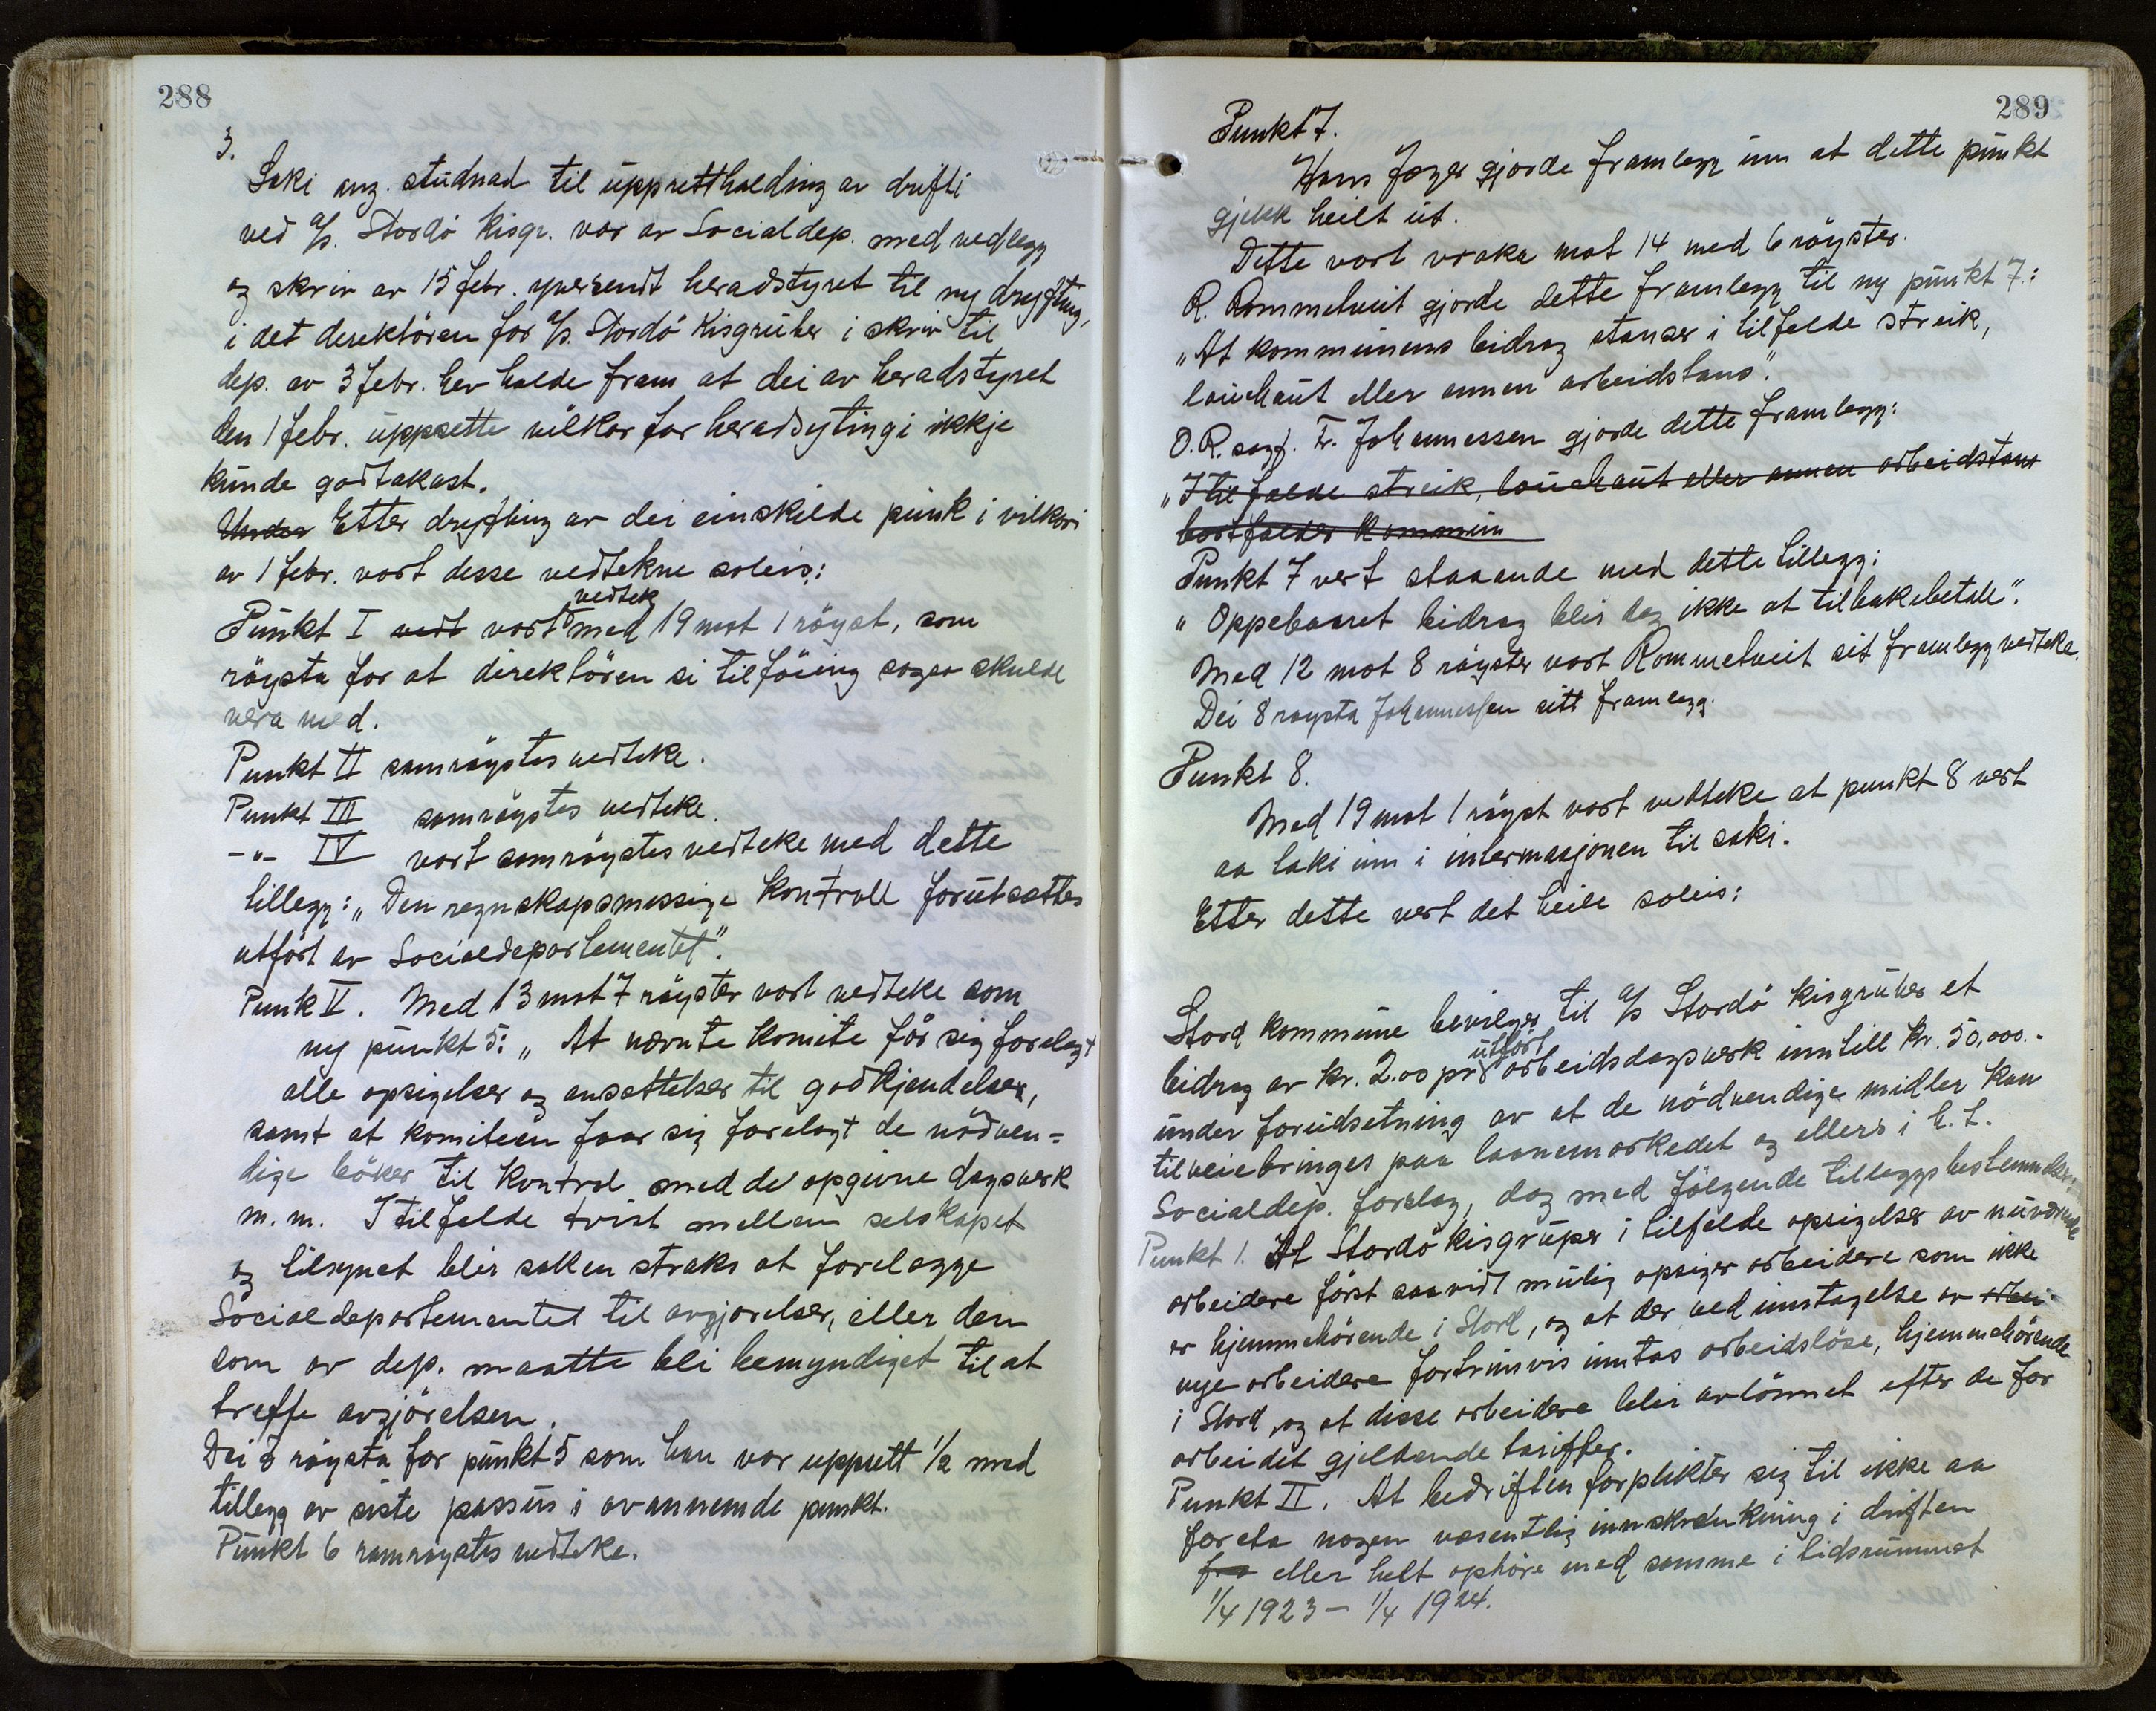 288
3.
Saki ang. studnad til upprettholding av drifti
ved A/S. Stordö Kisgr. var av Socialdep. med vedlegg
og skriv av 15 febr. yversendt heradstyret til ny dryfting,
i det direktören for A/S. Stordö Kisgruber i skriv til
dep. av 3 febr. hev halde fram at dei av heradstyret
den 1 febr. uppsette vilkor for heradsytingi ikkje
kunde godtakast.
Under Etter dryfting av dei einskilde punk i vilkori
av 1 febr. vart desse vedtekne soleis:
vedtek
Punkt I vedt vart med 19 mot 1 röyst, som
röysta for at direktören si tilföiing skulde
vera med.
Punkt II samröystes vedteke.
Punkt III samröystes vedteke.
-"- IV vart samröystes vedteke med dette
tillegg: „Den regnskapsmessige kontroll forutsættes
utfört av Socialdepartementet".
Punk V. Med 13 mot 7 röyster vart vedteke som
ny punkt 5: „At nævnte komite får sig forelagt
alle opsigelser og ansættelser til godkjendelse,
samt at komiteen faar sig forelagt de nödven=
dige böker til kontrol med de opgivne dagsverk
m.m. I tilfelde tvist mellem selskapet
og tilsynet blir saken straks at forelægge
Socialdepartementet til avgjørelse, eller den
som av dep. maatte bli bemyndiget til at
treffe avgjörelsen.
Dei 7 röysta for punkt 5 som han var uppsett 1/2 med
tillegg av siste passus i ovannemde punkt.
Punkt 6 samröystes vedteke.
289
Punkt 7.
Hans Jæger gjorde framlegg um at dette punkt
gjekk heilt ut.
Dette vart vraka mot 14 med 6 röyster.
R. Rommetveit gjorde dette framlegg til ny punkt 7.:
„At kommunens bidrag stanser i tilfelde streik,
louchaut eller annen arbeidstans".
O.R. sagf. Fr. Johannessen gjorde dette framlegg:
„I tilfælde streik, louchaut eller annen arbeidstans
bortfalder kommun
Punkt 7 vert staaande med dette tillegg:
„Oppebaaret bidrag blir dog ikke at tilbakebetale".
Med 12 mot 8 röyster vart Rommetveit sit framlegg vedteke.
Dei 8 røysta Johannessen sitt framlegg.
Punkt 8.
Med 19 mot 1 röyst vart vedteke at punkt 8 vert
aa taki inn i intermasjonen til saki.
Etter dette vert det heile soleis:
Stord kommune bevilger til A/S Stordö Kisgruber et
utfört
bidrag av kr. 2.00 pr arbeidsdagsverk inntill kr. 50,000.-
under forudsetning av at de nödvendige midler kan
tilveiebringes paa laanemarkedet og ellers i h.t.
Socialdep. forslag, dog med fölgende tilleggsbestemmelser:
Punkt 1. At Stordö Kisgruper i tilfelde opsigelser av nuværende
arbeidere först saavidt mulig opsiger arbeidere som ikke
er hjemmehörende i Stord, og at der ved inntagelse av arbei-
nye arbeidere fortrinsvis inntas arbeidslöse, hjemmehörende
i Stord, og at disse arbeidere blir avlönnet efter de for
arbeidet gjeldende tariffer.
Punkt II. At bedriften forplikter sig til ikke aa
foreta nogen væsentlig innskrænkning i driften
fra eller helt ophöre med samme i tidsrummet
1/4 1923 - 1/4 1924.